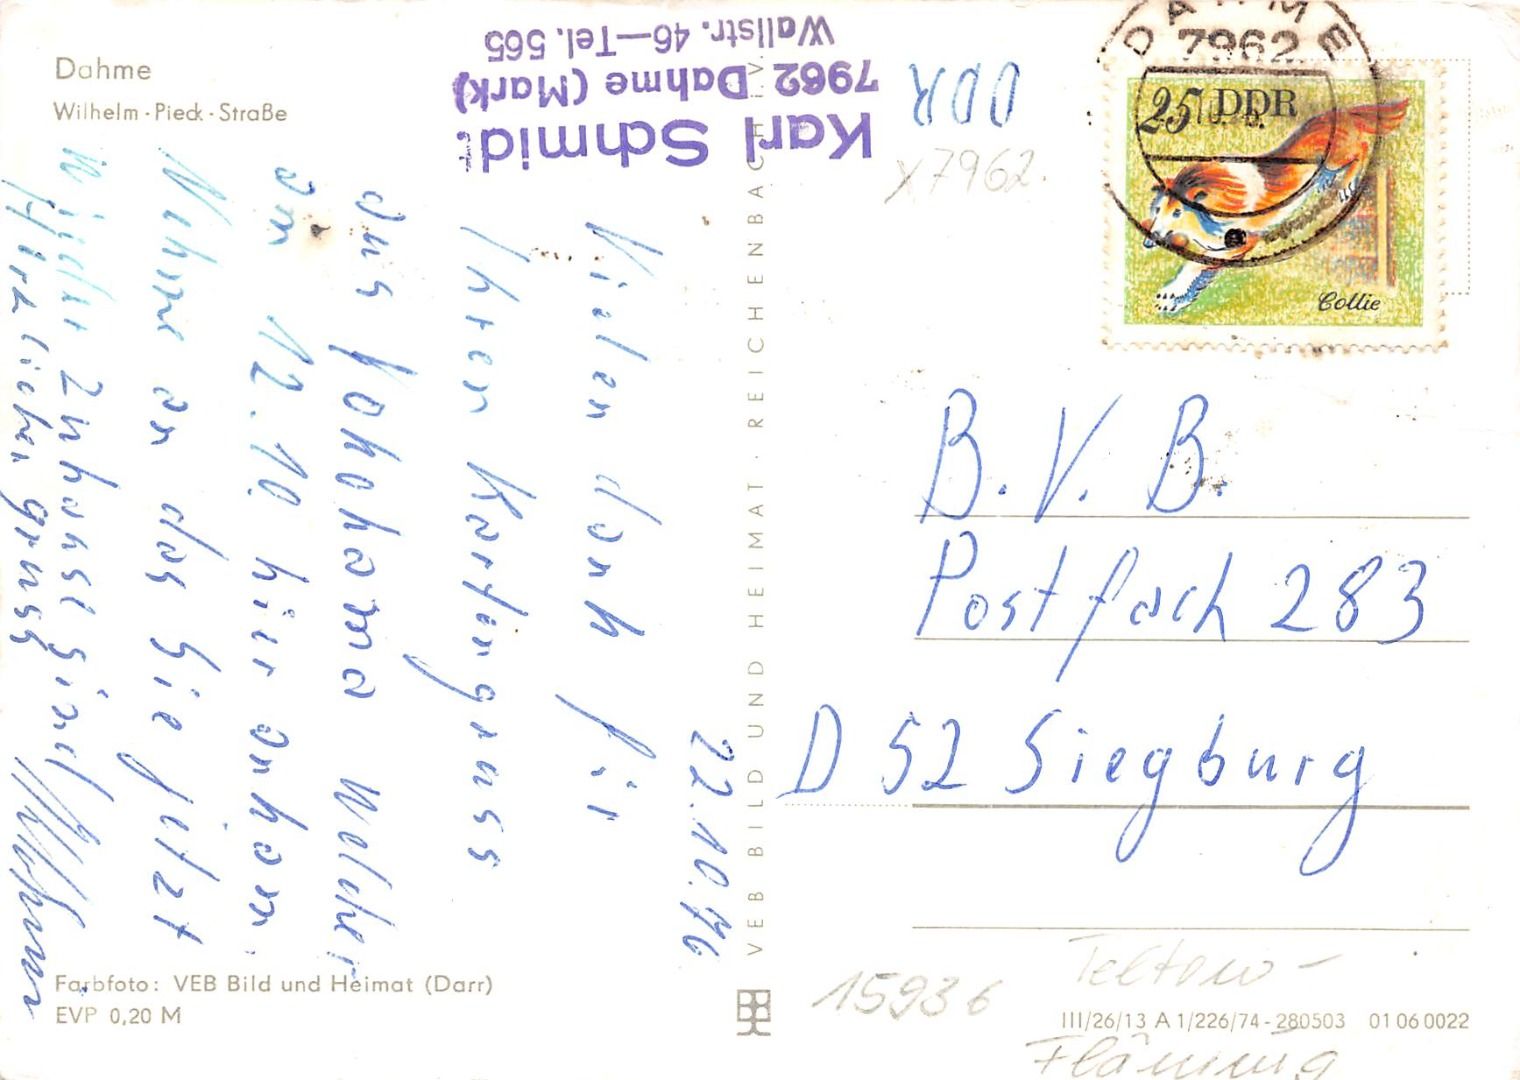 Dahme
Wilhelm-Pieck-Straße
Karl Schmidt
7962 Dahme (Mark)
Wallstr. 46—Tel. 565
DDR
X7962.
DAHME
7962
25 DDR
Collie
22.10.76
Vielen dank für
Ihren Kartengruss
aus Yokohama welcher
am 12.10. hier ankam.
Nehme an das Sie jetzt
wieder zuhause sind
Herzlichen gruss
VEB BILD UND HEIMAT · REICHENBACH I. V.
B. V. B.
Postfach 283
D 52 Siegburg
Farbfoto: VEB Bild und Heimat (Darr)
EVP 0,20 M
15936
Teltow-
Fläming
III/26/13 A 1/226/74-280503 01 06 0022